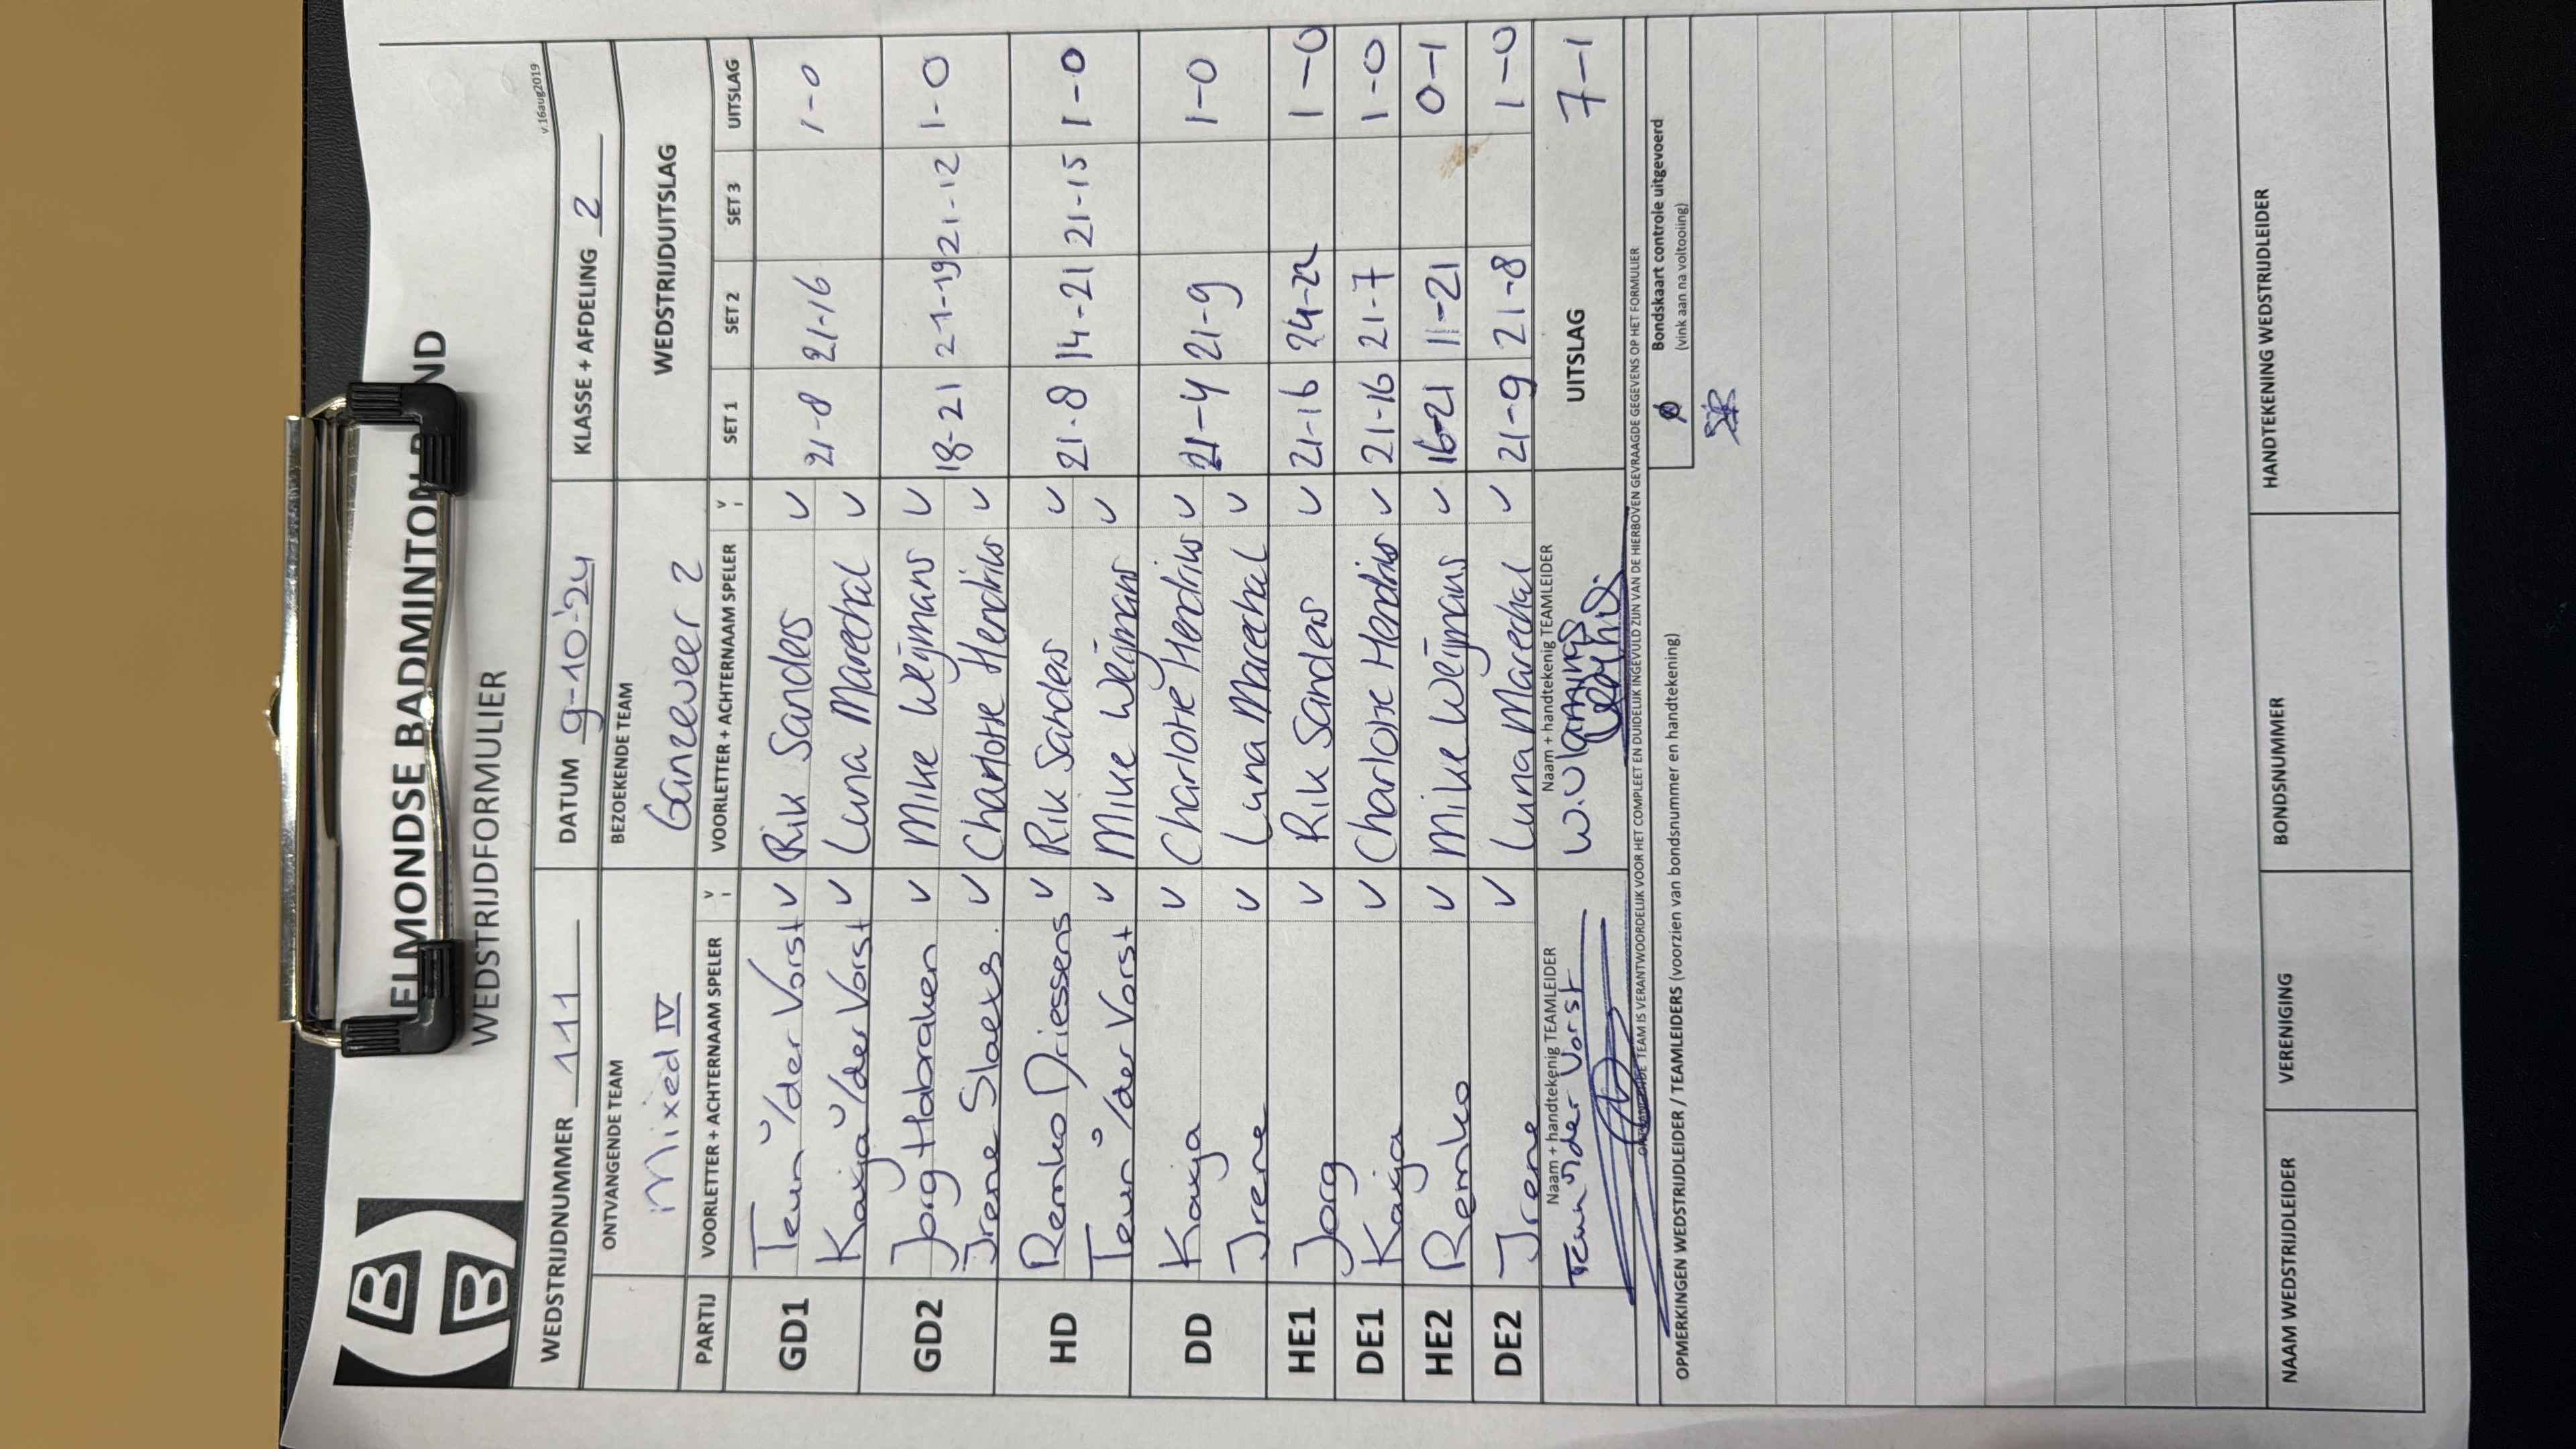 HELMONDSE BADMINTON BOND
WEDSTRIJDFORMULIER
v.16aug2019
WEDSTRIJDNUMMER 111 DATUM 9-10-'24 KLASSE + AFDELING 2
ONTVANGENDE TEAM BEZOEKENDE TEAM WEDSTRIJDUITSLAG
Mixed IV Ganzeveer 2
PARTIJ VOORLETTER + ACHTERNAAM SPELER V VOORLETTER + ACHTERNAAM SPELER V SET 1 SET 2 SET 3 UITSLAG
GD1 Teun v/der Vorst v Rik Sanders v 21-8 21-16 1-0
Kaxja v/der Vorst v Luna Marechal v
GD2 Jorg Habraken v Mike Weijmans v 18-21 21-19 21-12 1-0
Irene Slaexs v Charlotte Hendriks v
HD Remko Driessens v Rik Sanders v 21-8 14-21 21-15 1-0
Teun v/der Vorst v Mike Weijmans v
DD Kaxja v Charlotte Hendriks v 21-4 21-9 1-0
Irene v Luna Marechal v
HE1 Jorg v Rik Sanders v 21-16 24-22 1-0
DE1 Kaxja v Charlotte Hendriks v 21-16 21-7 1-0
HE2 Remko v Mike Weijmans v 16-21 11-21 0-1
DE2 Irene v Luna Marechal v 21-9 21-8 1-0
Naam + handtekenig TEAMLEIDER Naam + handtekenig TEAMLEIDER UITSLAG 7-1
Teun v/der Vorst W. Vlamings
TEAM IS VERANTWOORDELIJK VOOR HET COMPLEET EN DUIDELIJK INGEVULD ZIJN VAN DE HIERBOVEN GEVRAAGDE GEGEVENS OP HET FORMULIER
OPMERKINGEN WEDSTRIJDLEIDER / TEAMLEIDERS (voorzien van bondsnummer en handtekening)
Bondskaart controle uitgevoerd
(vink aan na voltooiing)
NAAM WEDSTRIJDLEIDER VERENIGING BONDSNUMMER HANDTEKENING WEDSTRIJDLEIDER